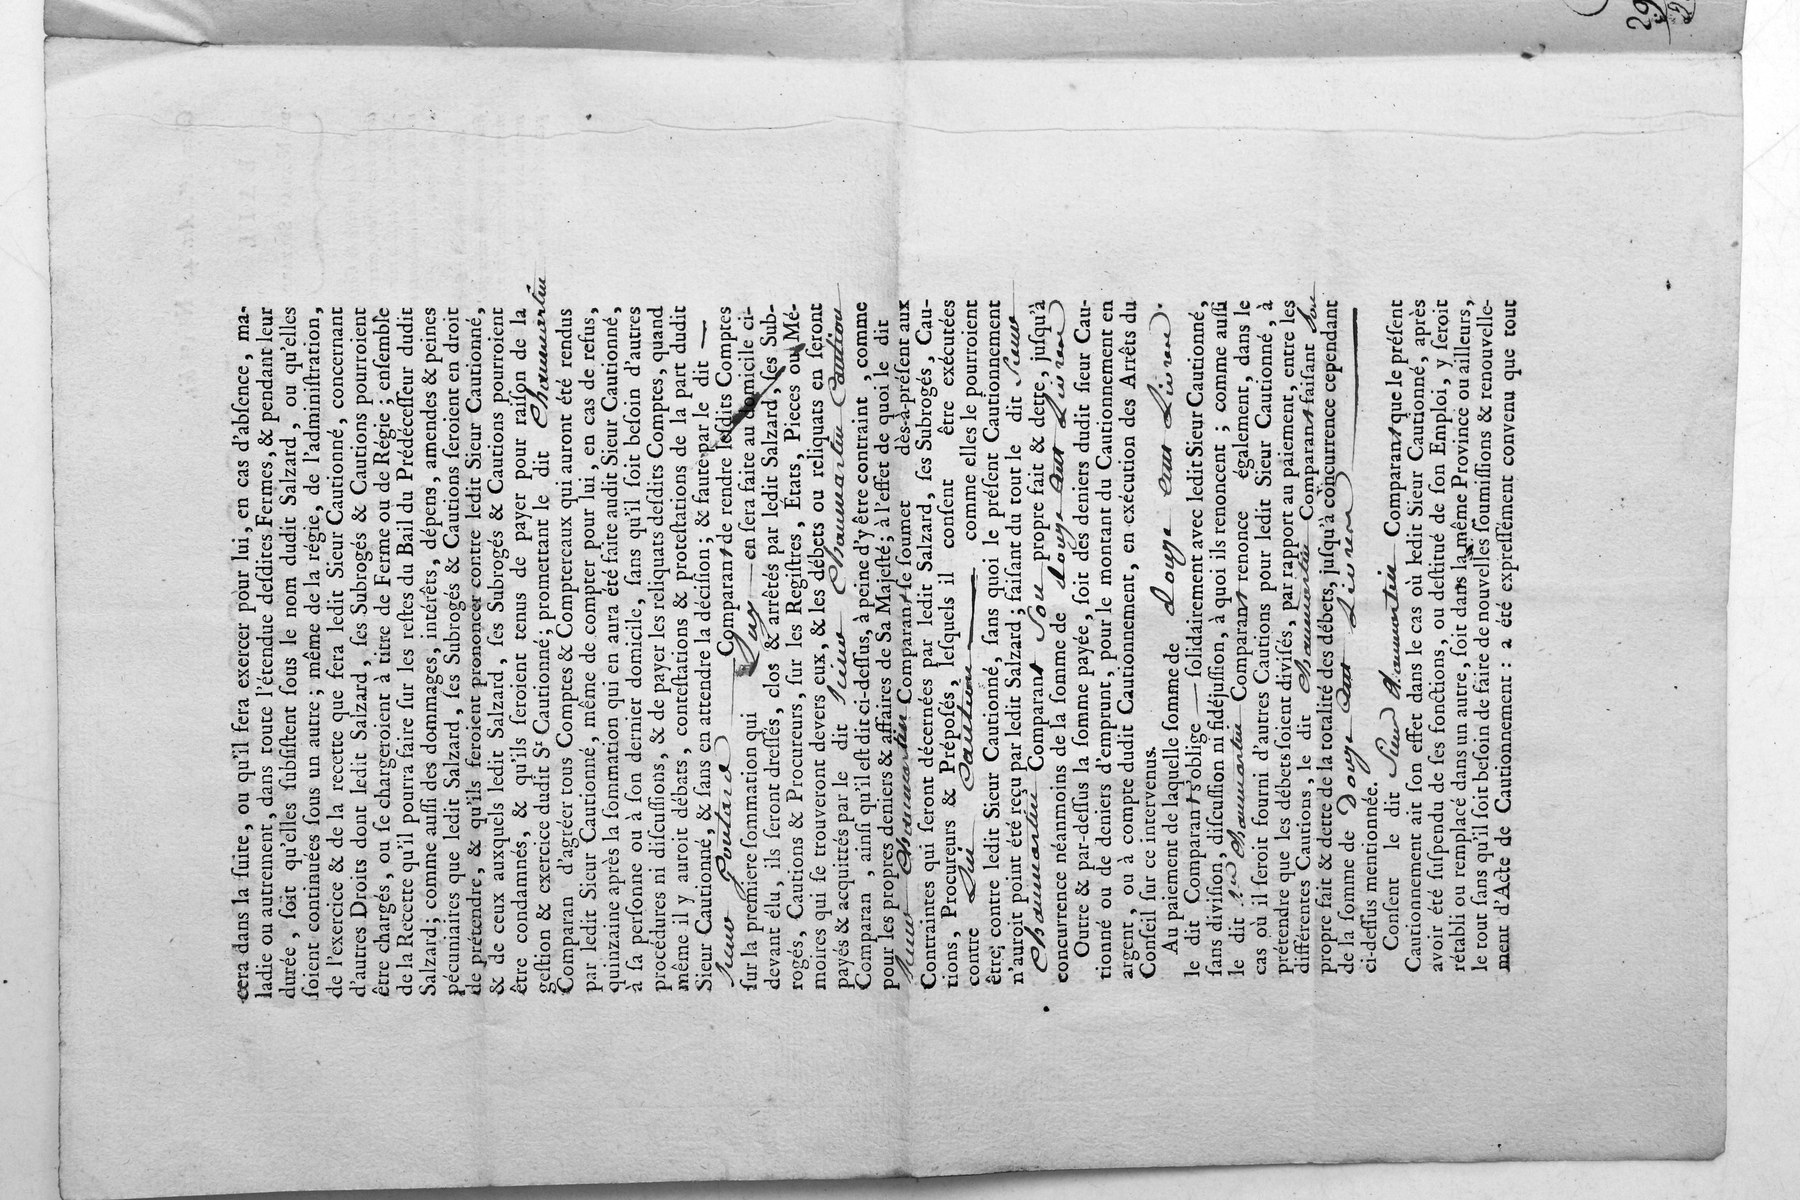 cera dans la ſuite, ou qu'il ſera exercer pour lui, en cas d'abſence, ma-
ladie ou autrement, dans toute l'étendue deſdites Fermes, & pendant leur
durée, ſoit qu'elles ſubſiſtent ſous le nom dudit Salzard, ou qu'elles
ſoient continuées ſous un autre; même de la régie, de l'adminiſtration,
de l'exercice & de la recette que fera ledit Sieur Cautionné, concernant
d'autres Droits dont ledit Salzard, ſes Subrogés & Cautions pourroient
être chargés, ou ſe chargeroient à titre de Ferme ou de Régie; enſemble
de la Recette qu'il poura faire ſur les reſtes du Bail du Prédéceſſeur dudit
Salzard; comme auſſi des dommages, intérêts, dépens, amendes & peines
pécuniaires que ledit Salzard, ſes Subrogés & Cautions ſeroient en droit
de prétendre, & qu'ils feroient prononcer contre ledit Sieur Cautionné,
& de ceux auxquels ledit Salzard, ſes Subrogés & Cautions pourroient
être condamnés, & qu'ils ſeroient tenus de payer pour raiſon de la
geſtion & exercice dudit Sr Cautionné; promettant le dit Chaumartin
Comparan d'agréer tous Comptes & Comptereaux qui auront été rendus
par ledit Sieur Cautionné, même de compter pour lui, en cas de refus,
quinzaine après la ſommation qui en aura été faite audit Sieur Cautionné,
à ſa perſonne ou à ſon dernier domicile, ſans qu'il ſoit beſoin d'autres
procédures ni diſcuſſions, & de payer les reliquats deſdits Comptes, quand
même il y auroit débats, conteſtations & proteſtations de la part dudit
Sieur Cautionné, & ſans en attendre la déciſion; & faute par le dit —
Comparant de rendre leſdits Comptes
ſur la première ſommation qui Luy — en ſera faite au domicile ci-
devant élu, ils ſeront dreſſés, clos & arrêtés par ledit Salzard, ſes Sub-
rogés, Cautions & Procureurs, ſur les Regiſtres, États, Pieces ou Mé-
moires qui ſe trouveront devers eux, & les débets ou reliquats en ſeront
payés & acquittés par le dit Sieur Chaumartin Caution
Comparan , ainſi qu'il eſt dit ci-deſſus, à peine d'y être contraint, comme
pour les propres deniers & affaires de Sa Majeſté; à l'effet de quoi le dit
Sieur Chaumartin Comparant ſe ſoumet dès-à-préſent aux
Contraintes qui ſeront décernées par ledit Salzard, ſes Subrogés, Cau-
tions, Procureurs & Prépoſés, leſquels il conſent être exécutées
contre Lui Caution — comme elles le pourroient
être; contre ledit Sieur Cautionné, ſans quoi le préſent Cautionnement
n'auroit point été reçu par ledit Salzard; faiſant du tout le dit Sieur
Chaumartin Comparant Son propre fait & dette, juſqu'à
concurrence néanmoins de la ſomme de douze cent Livres
Outre & par-deſſus la ſomme payée, ſoit des deniers dudit ſieur Cau-
tionné ou de deniers d'emprunt, pour le montant du Cautionnement en
argent, ou à compte dudit Cautionnement, en exécution des Arrêts du
Conſeil ſur ce intervenus.
Au paiement de laquelle ſomme de douze cent Livres.
le dit Comparant s'oblige — ſolidairement avec ledit Sieur Cautionné,
ſans diviſion, diſcuſſion ni fidéjuſſion, à quoi ils renoncent; comme auſſi
le dit Sr Chaumartin Comparant renonce également, dans le
cas où il ſeroit fourni d'autres Cautions pour ledit Sieur Cautionné, à
prétendre que les débets ſoient diviſés, par rapport au paiement, entre les
différentes Cautions, le dit Chaumartin Comparant faiſant Son
propre fait & dette de la totalité des débets, juſqu'à concurrence cependant
de la ſomme de Douze Cent Livres —
ci-deſſus mentionnée.
Conſent le dit Sieur Chaumartin Comparant que le préſent
Cautionnement ait ſon effet dans le cas où ledit Sieur Cautionné, après
avoir été ſuſpendu de ſes fonctions, ou deſtitué de ſon Emploi, y ſeroit
rétabli ou remplacé dans un autre, ſoit dans la même Province ou ailleurs,
le tout ſans qu'il ſoit beſoin de faire de nouvelles ſoumiſſions & renouvelle-
ment d'Acte de Cautionnement: a été expreſſément convenu que tout